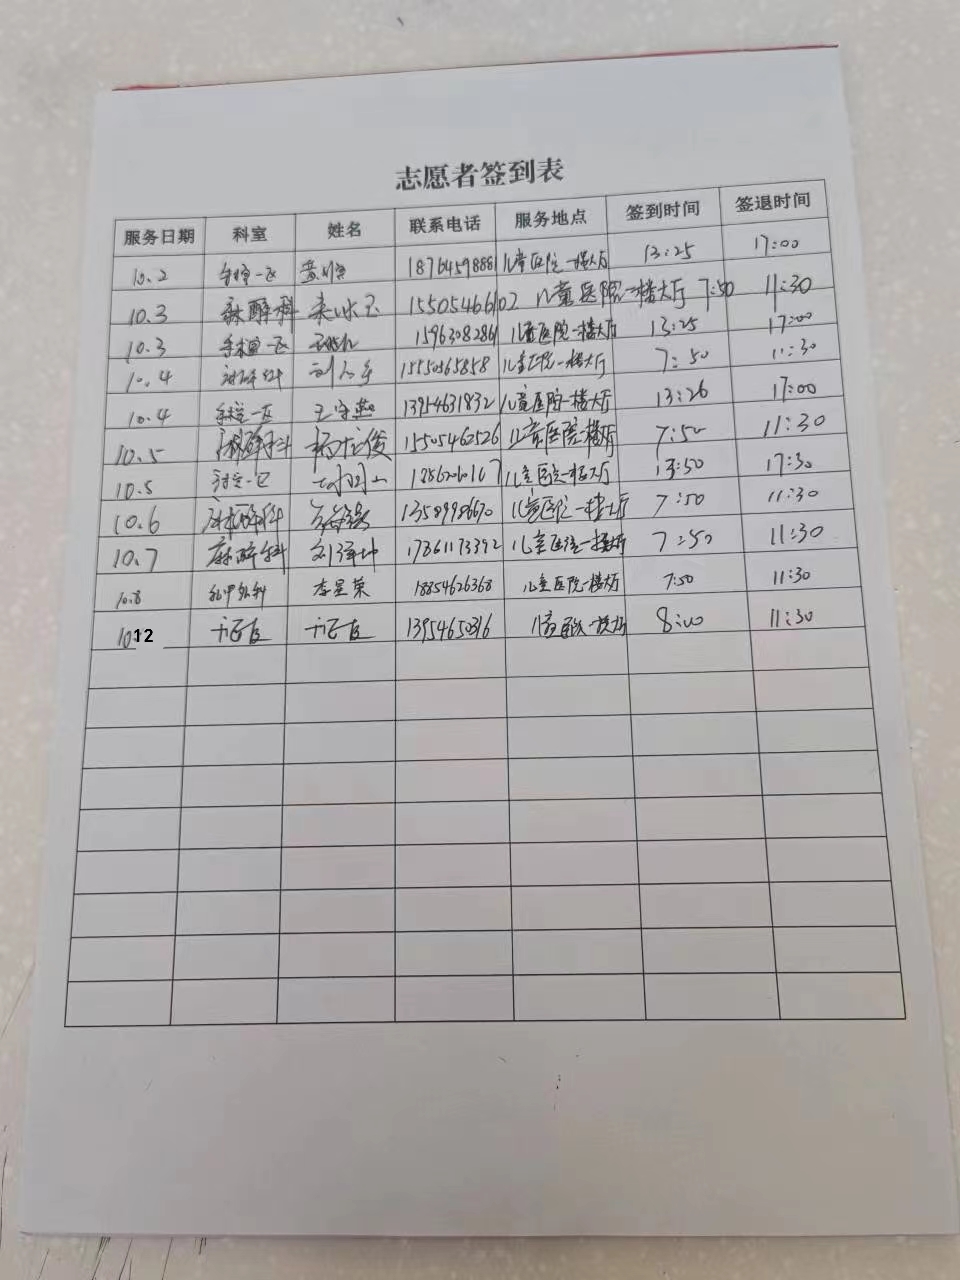 志愿者签到表
服务日期 科室 姓名 联系电话 服务地点 签到时间 签退时间
10.2 手术室一区 1876459888 儿童医院一楼大厅 13:25 17:00
10.3 麻醉科 15505466102 儿童医院一楼大厅 7:50 11:30
10.3 手术室一区 1596308286 儿童医院一楼大厅 13:25 17:00
10.4 麻醉科 15550565858 儿童医院一楼大厅 7:50 11:30
10.4 手术室一区 王守燕 13954631832 儿童医院一楼大厅 13:26 17:00
10.5 麻醉科 杨俊 15505462526 儿童医院一楼大厅 7:50 11:30
10.5 儿童医院一楼大厅 13:50 17:30
10.6 麻醉科 13589986690 儿童医院一楼大厅 7:50 11:30
10.7 麻醉科 刘泽坤 17861173392 儿童医院一楼大厅 7:50 11:30
10.8 李星荣 18854626368 儿童医院一楼大厅 7:50 11:30
1012 13954650316 儿童医院一楼大厅 8:00 11:30